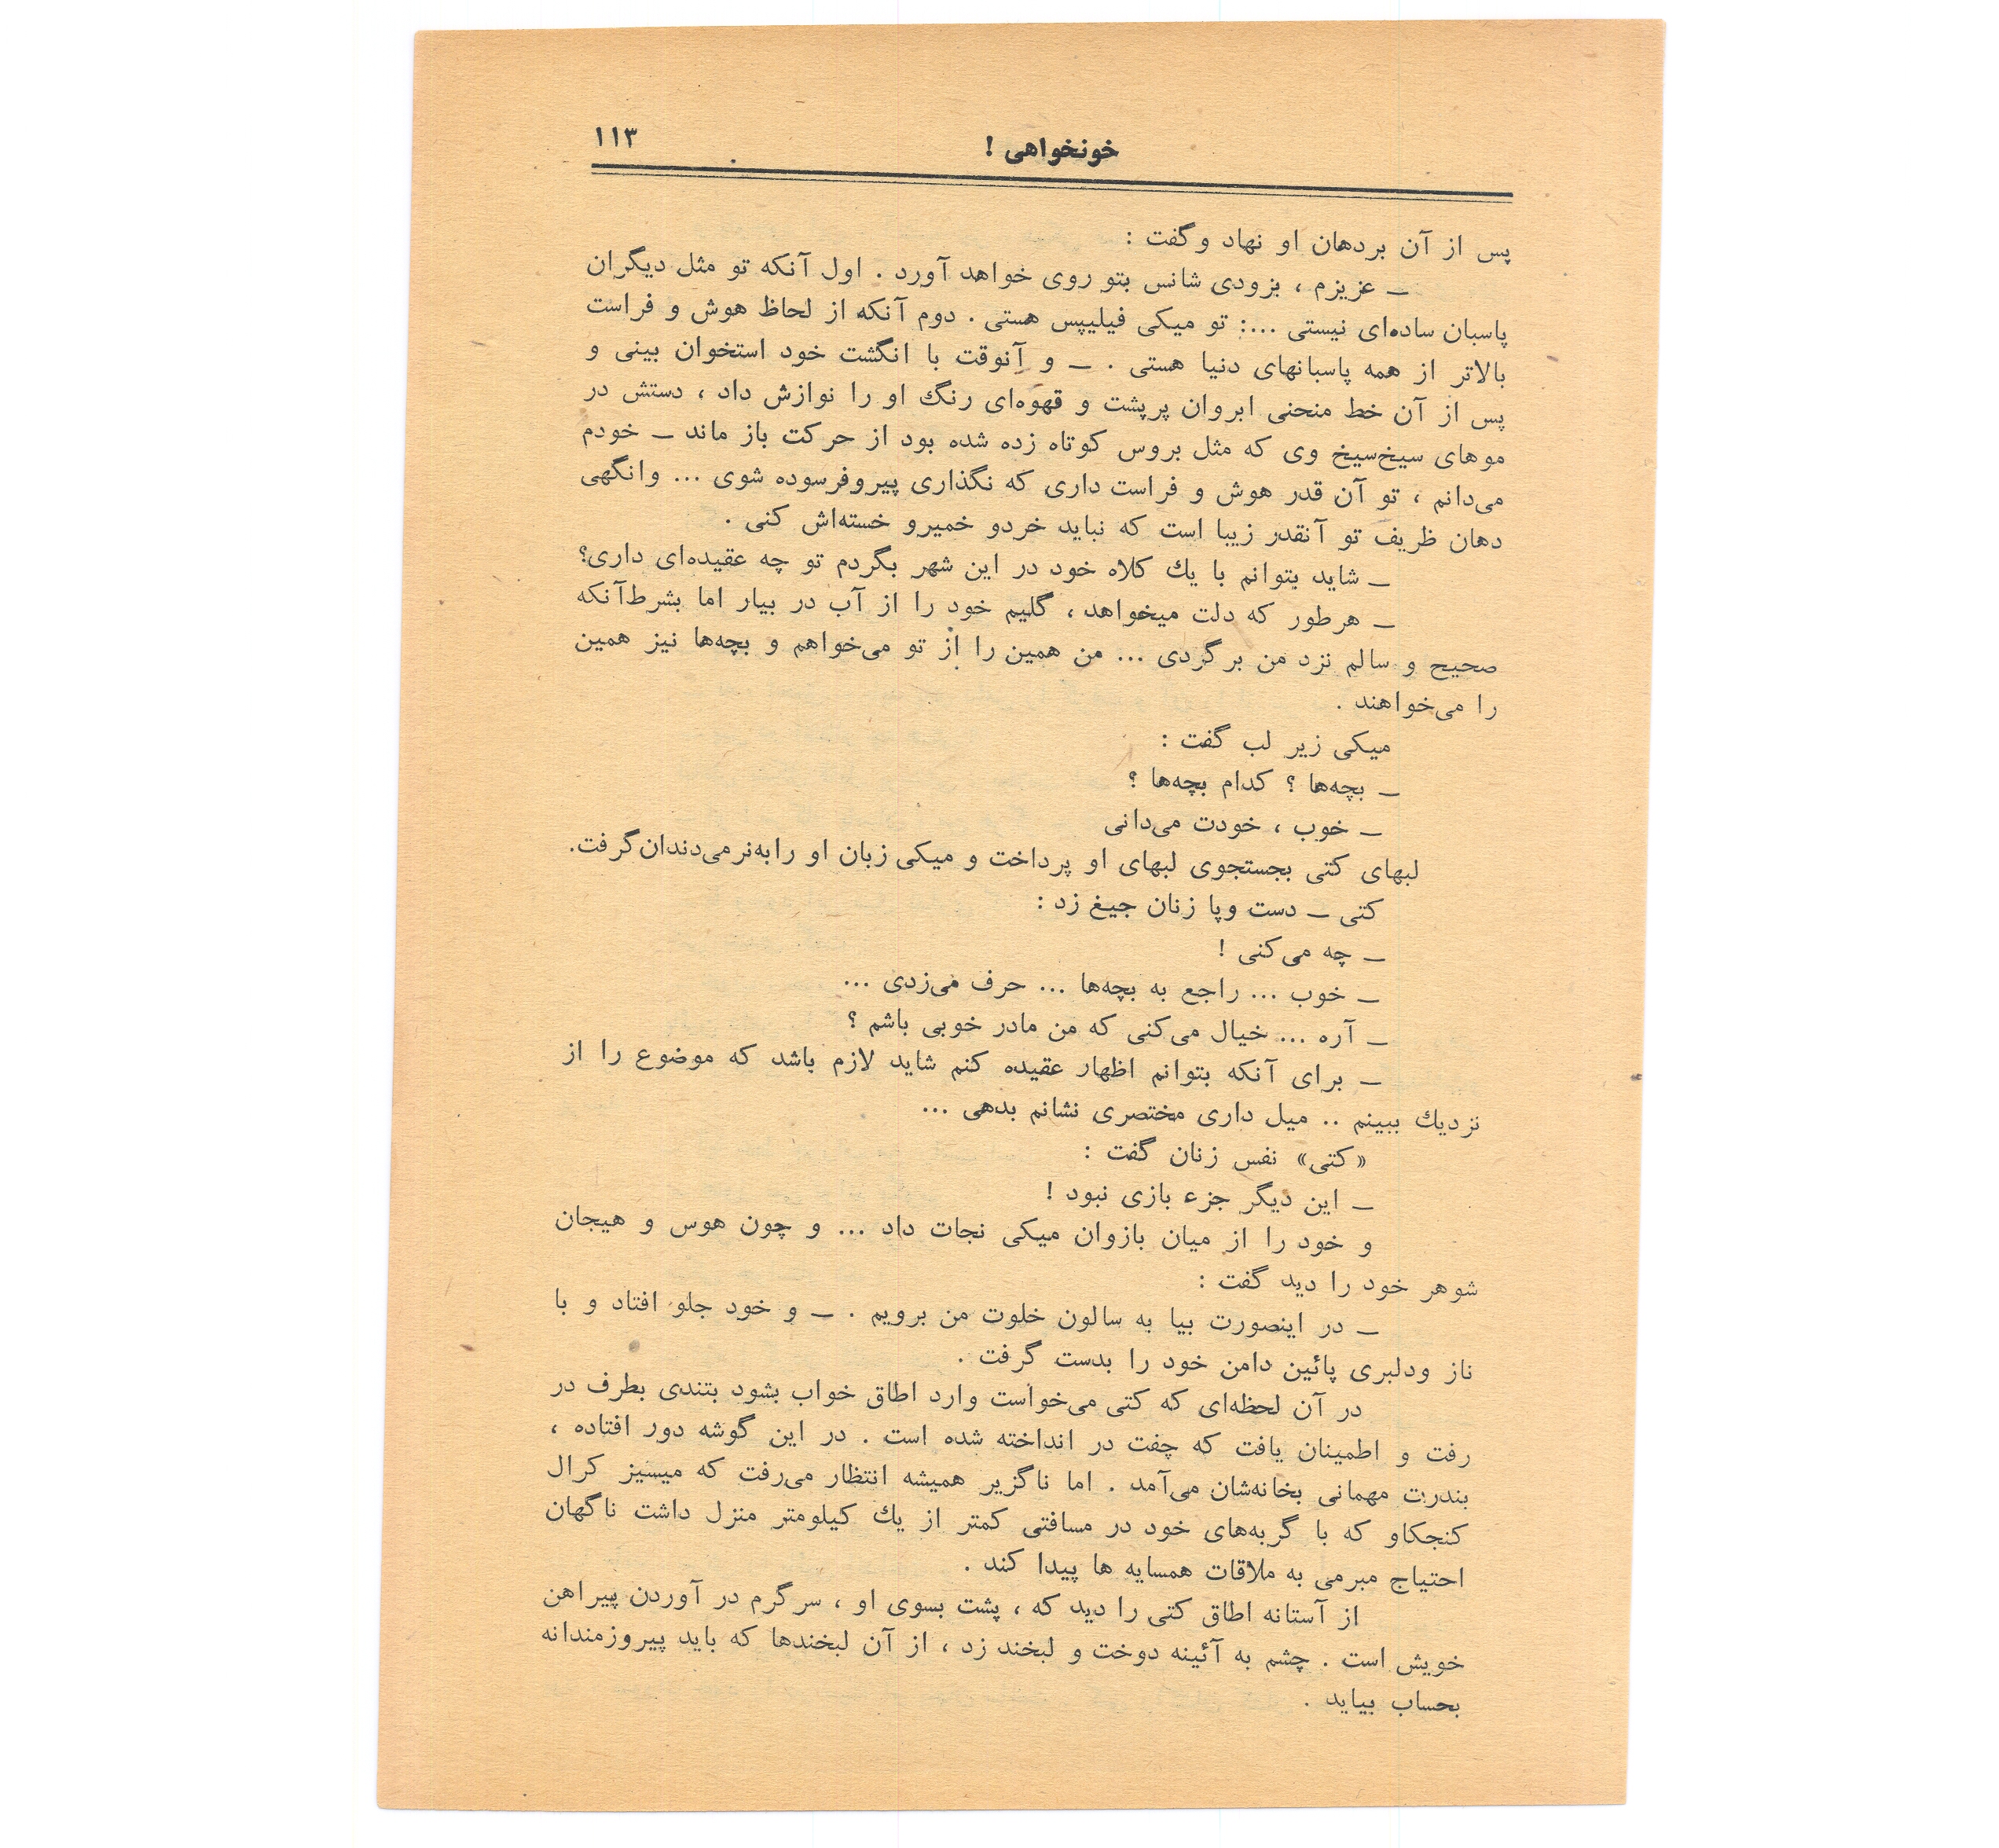 خونخواهی !
۱۱۳
پس از آن بردهان او نهاد وگفت :
ـ عزیزم ، بزودی شانس بتو روی خواهد آورد . اول آنکه تو مثل دیگران
پاسبان ساده‌ای نیستی ...: تو میکی فیلیپس هستی . دوم آنکه از لحاظ هوش و فراست
بالاتر از همه پاسبانهای دنیا هستی . ـ و آنوقت با انگشت خود استخوان بینی و
پس از آن خط منحنی ابروان پرپشت و قهوه‌ای رنگ او را نوازش داد ، دستش در
موهای سیخ‌سیخ وی که مثل بروس کوتاه زده شده بود از حرکت باز ماند ـ خودم
می‌دانم ، تو آن قدر هوش و فراست داری که نگذاری پیروفرسوده شوی ... وانگهی
دهان ظریف تو آنقدر زیبا است که نباید خردو خمیرو خسته‌اش کنی .
ـ شاید بتوانم با یك کلاه خود در این شهر بگردم تو چه عقیده‌ای داری؟
ـ هرطور که دلت میخواهد ، گلیم خود را از آب در بیار اما بشرط‌آنکه
صحیح و سالم نزد من برگردی ... من همین را از تو می‌خواهم و بچه‌ها نیز همین
را می‌خواهند .
میکی زیر لب گفت :
ـ بچه‌ها ؟ کدام بچه‌ها ؟
ـ خوب ، خودت می‌دانی
لبهای کتی بجستجوی لبهای او پرداخت و میکی زبان او رابه‌نرمی‌دندان‌گرفت.
کتی ـ دست وپا زنان جیغ زد :
ـ چه می‌کنی !
ـ خوب ... راجع به بچه‌ها ... حرف می‌زدی ...
ـ آره ... خیال می‌کنی که من مادر خوبی باشم ؟
ـ برای آنکه بتوانم اظهار عقیده کنم شاید لازم باشد که موضوع را از
نزدیك ببینم .. میل داری مختصری نشانم بدهی ...
«کتی» نفس زنان گفت :
ـ این دیگر جزء بازی نبود !
و خود را از میان بازوان میکی نجات داد ... و چون هوس و هیجان
شوهر خود را دید گفت :
ـ در اینصورت بیا به سالون خلوت من برویم . ـ و خود جلو افتاد و با
ناز ودلبری پائین دامن خود را بدست گرفت .
در آن لحظه‌ای که کتی می‌خواست وارد اطاق خواب بشود بتندی بطرف در
رفت و اطمینان یافت که چفت در انداخته شده است . در این گوشه دور افتاده ،
بندرت مهمانی بخانه‌شان می‌آمد . اما ناگزیر همیشه انتظار می‌رفت که میسیز کرال
کنجکاو که با گربه‌های خود در مسافتی کمتر از یك کیلومتر منزل داشت ناگهان
احتیاج مبرمی به ملاقات همسایه ها پیدا کند .
از آستانه اطاق کتی را دید که ، پشت بسوی او ، سرگرم در آوردن پیراهن
خویش است . چشم به آئینه دوخت و لبخند زد ، از آن لبخندها که باید پیروزمندانه
بحساب بیاید .